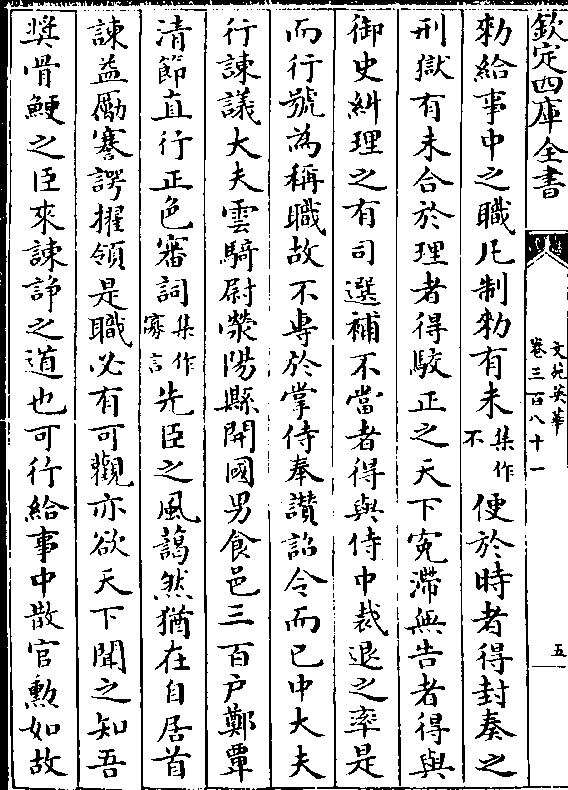 欽定四庫全書
文苑英華
卷三百八十一
五
勑給事中之職凡制勑有未集作不便於時者得封奏之
刑獄有未合於理者得駮正之天下寃滯無告者得與
御史糾理之有司選補不當者得與侍中裁退之率是
而行號為稱職故不専於掌侍奉讃詔令而已中大夫
行諫議大夫雲騎尉滎陽縣開國男食邑三百户鄭覃
清節直行正色審詞集作寡言先臣之風藹然猶在自居首
諫益勵謇諤擢領是職必有可觀亦欲天下聞之知吾
奬骨鯁之臣來諫諍之道也可行給事中散官勲如故